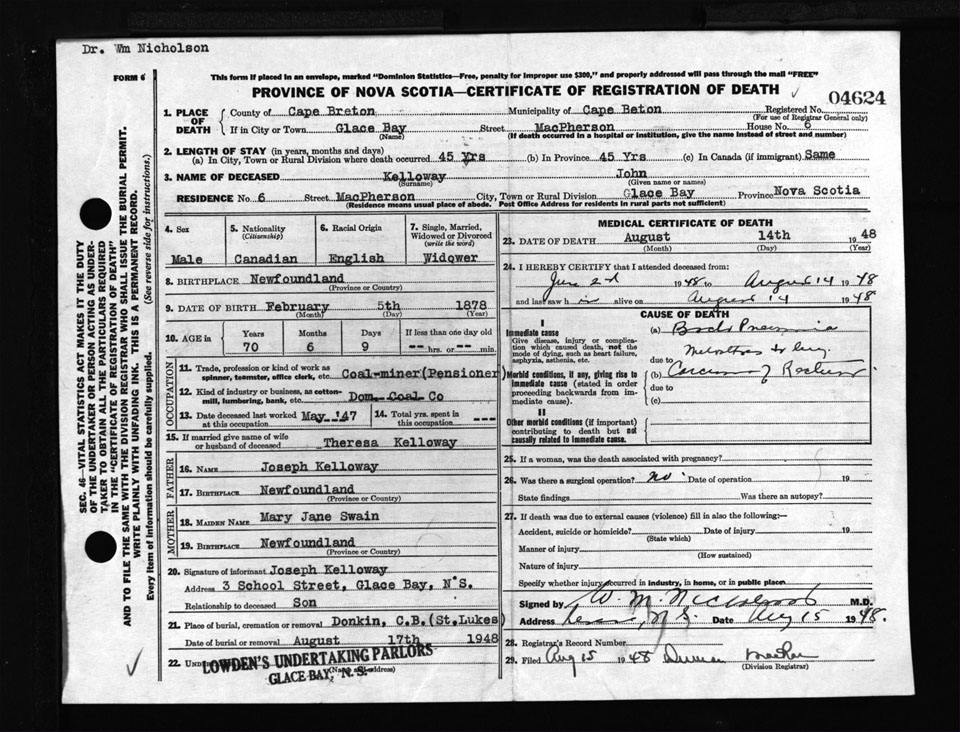 Dr. Wm Nicholson
FORM 6
This form if placed in an envelope, marked "Dominion Statistics—Free, penalty for improper use $300," and properly addressed will pass through the mail "FREE"
PROVINCE OF NOVA SCOTIA—CERTIFICATE OF REGISTRATION OF DEATH
04624
SEC. 46—VITAL STATISTICS ACT MAKES IT THE DUTY
OF THE UNDERTAKER OR PERSON ACTING AS UNDER-
TAKER TO OBTAIN ALL THE PARTICULARS REQUIRED
IN THE "CERTIFICATE OF REGISTRATION OF DEATH"
AND TO FILE THE SAME WITH THE DIVISION REGISTRAR WHO SHALL ISSUE THE BURIAL PERMIT.
WRITE PLAINLY WITH UNFADING INK. THIS IS A PERMANENT RECORD.
Every item of information should be carefully supplied. (See reverse side for instructions.)
1. PLACE OF DEATH
County of Cape Breton Municipality of Cape Beton Registered No.
(For use of Registrar General only)
If in City or Town Glace Bay Street MacPherson House No. 6
(Name) (If death occurred in a hospital or institution, give the name instead of street and number)
2. LENGTH OF STAY (in years, months and days)
(a) In City, Town or Rural Division where death occurred 45 Yrs (b) In Province 45 Yrs (c) In Canada (if immigrant) Same
3. NAME OF DECEASED Kelloway John
(Surname) (Given name or names)
RESIDENCE No. 6 Street MacPherson City, Town or Rural Division Glace Bay Province Nova Scotia
(Residence means usual place of abode. Post Office Address for residents in rural parts not sufficient)
4. Sex
Male
5. Nationality
(Citizenship)
Canadian
6. Racial Origin
English
7. Single, Married,
Widowed or Divorced
(write the word)
Widower
8. BIRTHPLACE Newfoundland
(Province or Country)
9. DATE OF BIRTH February 5th 1878
(Month) (Day) (Year)
10. AGE in
Years Months Days If less than one day old
70 6 9 -- hrs. or -- min.
OCCUPATION
11. Trade, profession or kind of work as
spinner, teamster, office clerk, etc. Coal-miner(Pensioner)
12. Kind of industry or business, as cotton-
mill, lumbering, bank, etc. Dom. Coal Co
13. Date deceased last worked at this occupation May '47
14. Total yrs. spent in this occupation ---
15. If married give name of wife
or husband of deceased Theresa Kelloway
FATHER
16. NAME Joseph Kelloway
17. BIRTHPLACE Newfoundland
(Province or Country)
MOTHER
18. MAIDEN NAME Mary Jane Swain
19. BIRTHPLACE Newfoundland
(Province or Country)
20. Signature of informant Joseph Kelloway
Address 3 School Street, Glace Bay, N.S.
Relationship to deceased Son
21. Place of burial, cremation or removal Donkin, C.B.(St.Lukes)
Date of burial or removal August 17th 1948
22. UNDERTAKER
(Name and address)
LOWDEN'S UNDERTAKING PARLORS
GLACE BAY, N. S.
MEDICAL CERTIFICATE OF DEATH
23. DATE OF DEATH August 14th 1948
(Month) (Day) (Year)
24. I HEREBY CERTIFY that I attended deceased from:
June 2nd 1948 to August 14 1948
and last saw h im alive on August 14 1948
CAUSE OF DEATH
I
Immediate cause
Give disease, injury or complica-
tion which caused death, not the
mode of dying, such as heart failure,
asphyxia, asthenia, etc.
(a) Pneumonia
due to
Morbid conditions, if any, giving rise to
immediate cause (stated in order
proceeding backwards from im-
mediate cause).
(b) Carcinoma of Rectum
due to
(c)
II
Other morbid conditions (if important)
contributing to death but not
causally related to immediate cause.
25. If a woman, was the death associated with pregnancy?
26. Was there a surgical operation? no Date of operation 19
State findings Was there an autopsy?
27. If death was due to external causes (violence) fill in also the following:—
Accident, suicide or homicide? Date of injury 19
(State which)
Manner of injury
(How sustained)
Nature of injury
Specify whether injury occurred in industry, in home, or in public place
Signed by W. M. Nicholson M.D.
Address N.S. Date Aug 15 1948.
28. Registrar's Record Number
29. Filed Aug 15 1948 Duncan
(Division Registrar)